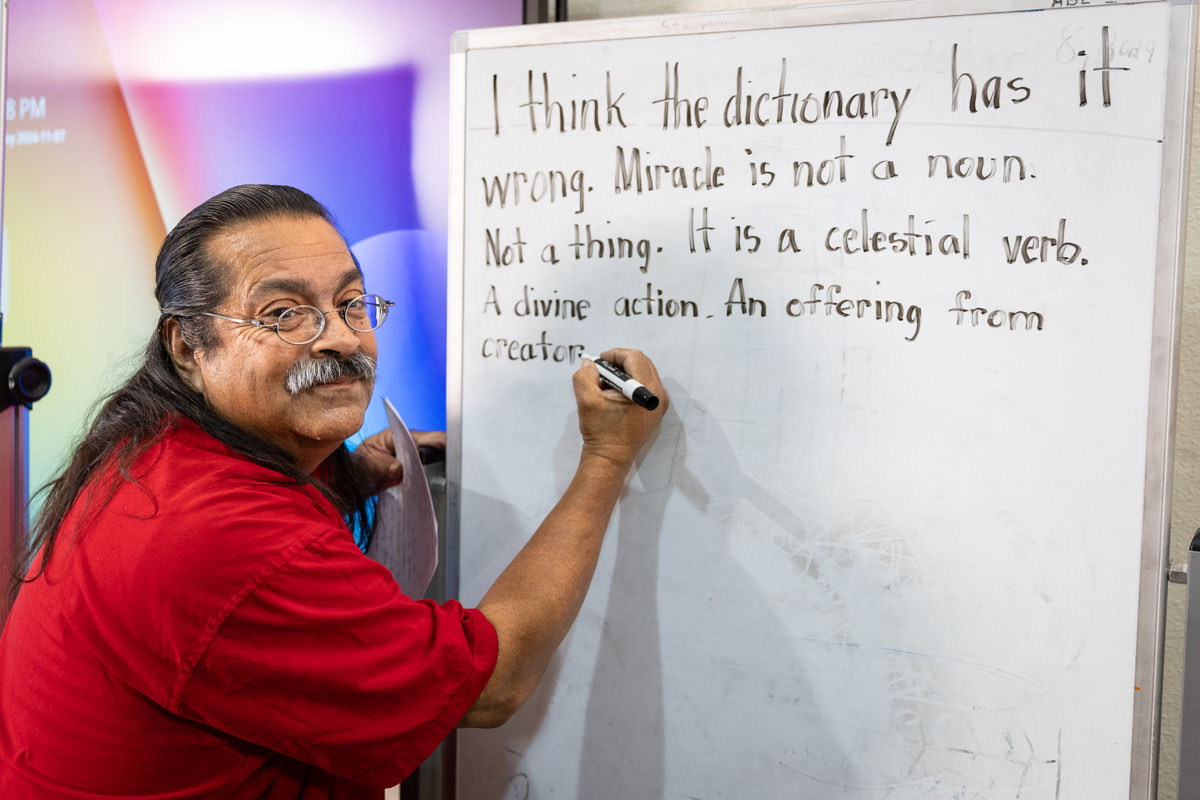 8 PM
2024-11-07
I think the dictionary has it
wrong. Miracle is not a noun.
Not a thing. It is a celestial verb.
A divine action. An offering from
creator.